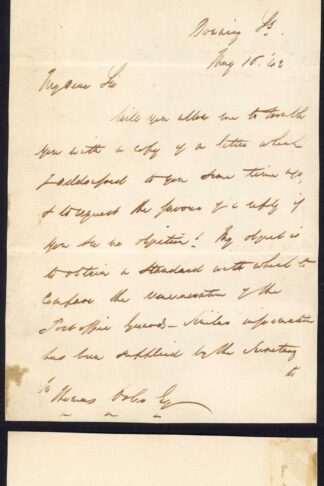 Downing St.
May 10. '42
My dear Sir
Will you allow me to trouble
you with a copy of a letter which
I addressed to you some time ago,
& to request the favour of a reply if
you see no objection? My object is
to obtain a standard with which to
compare the remuneration of the
Post office Guards – Similar information
has been supplied by the Secretary
to
Thomas Esq